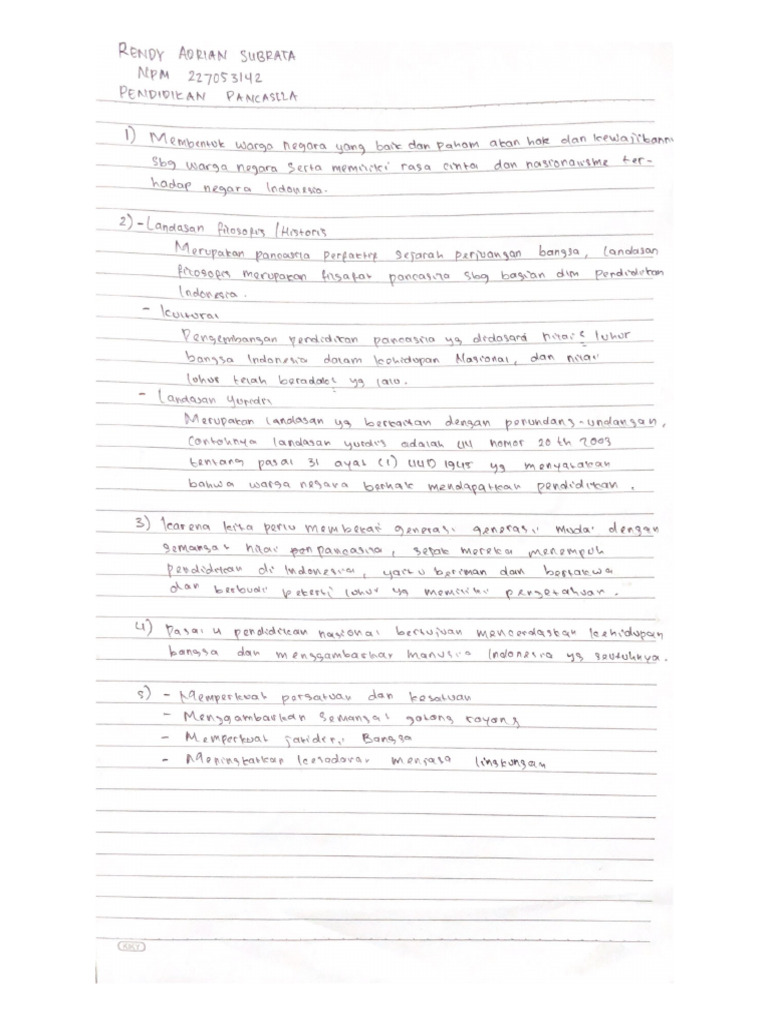 RENDY ADRIAN SUBRATA
NPM 227053142
PENDIDIKAN PANCASILA
1) Membentuk warga negara yang baik dan paham akan hak dan kewajibann
sbg warga negara serta memiliki rasa cinta dan nasionalisme ter-
hadap negara Indonesia.
2) - Landasan filosofis / Historis
Merupakan pancasila perspektif sejarah perjuangan bangsa, landasan
filosofis merupakan filsafat pancasila sbg bagian dlm pendidikan
Indonesia.
- Kultural
Pengembangan pendidikan pancasila yg didasari nilai² luhur
bangsa Indonesia dalam kehidupan Nasional, dan nilai
luhur telah beradab yg lalu.
- Landasan Yuridis
Merupakan landasan yg berkaitan dengan perundang-undangan,
contohnya landasan yurdis adalah UU nomor 20 th 2003
tentang pasal 31 ayat (1) UUD 1945 yg menyatakan
bahwa warga negara berhak mendapatkan pendidikan.
3) Karena kita perlu membekali generasi generasi muda dengan
semangat nilai pancasila, sejak mereka menempuh
pendidikan di Indonesia, yaitu beriman dan bertakwa
dan berbudi pekerti luhur yg memiliki pengetahuan.
4) Pasal 4 pendidikan nasional bertujuan mencerdaskan kehidupan
bangsa dan menggambarkan manusia Indonesia yg seutuhnya.
5) - Memperkuat persatuan dan kesatuan
- Menggambarkan semangat gotong royong
- Memperkuat jatidiri Bangsa
- Meningkatkan kesadaran menjaga lingkungan